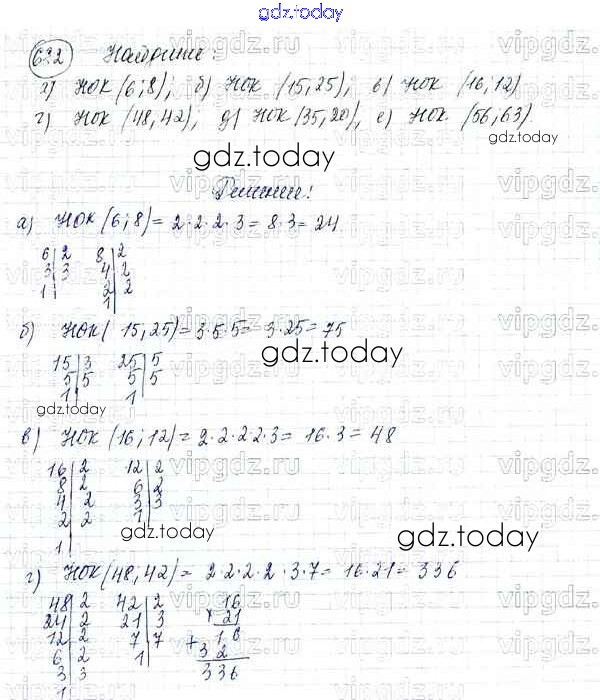 gdz.today
632 Найдите:
а) НОК (6;8); б) НОК (15,25); в) НОК (16,12)
г) НОК (48,42); д) НОК (35,20), е) НОК (56,63).
gdz.today
gdz.today
Решение:
а) НОК (6;8) = 2·2·2·3 = 8·3 = 24
6 2 8 2
3 3 4 2
1 2 2
1
б) НОК (15,25) = 3·5·5 = 3·25 = 75
gdz.today
15 3 25 5
5 5 5 5
1 1
gdz.today
в) НОК (16;12) = 2·2·2·2·3 = 16·3 = 48
16 2 12 2
8 2 6 2
4 2 3 3
2 2 1
1
gdz.today
gdz.today
г) НОК (48,42) = 2·2·2·2·3·7 = 16·21 = 336
48 2 42 2 16
24 2 21 3 × 21
12 2 7 7 + 16
6 2 1 32
3 3 336
1